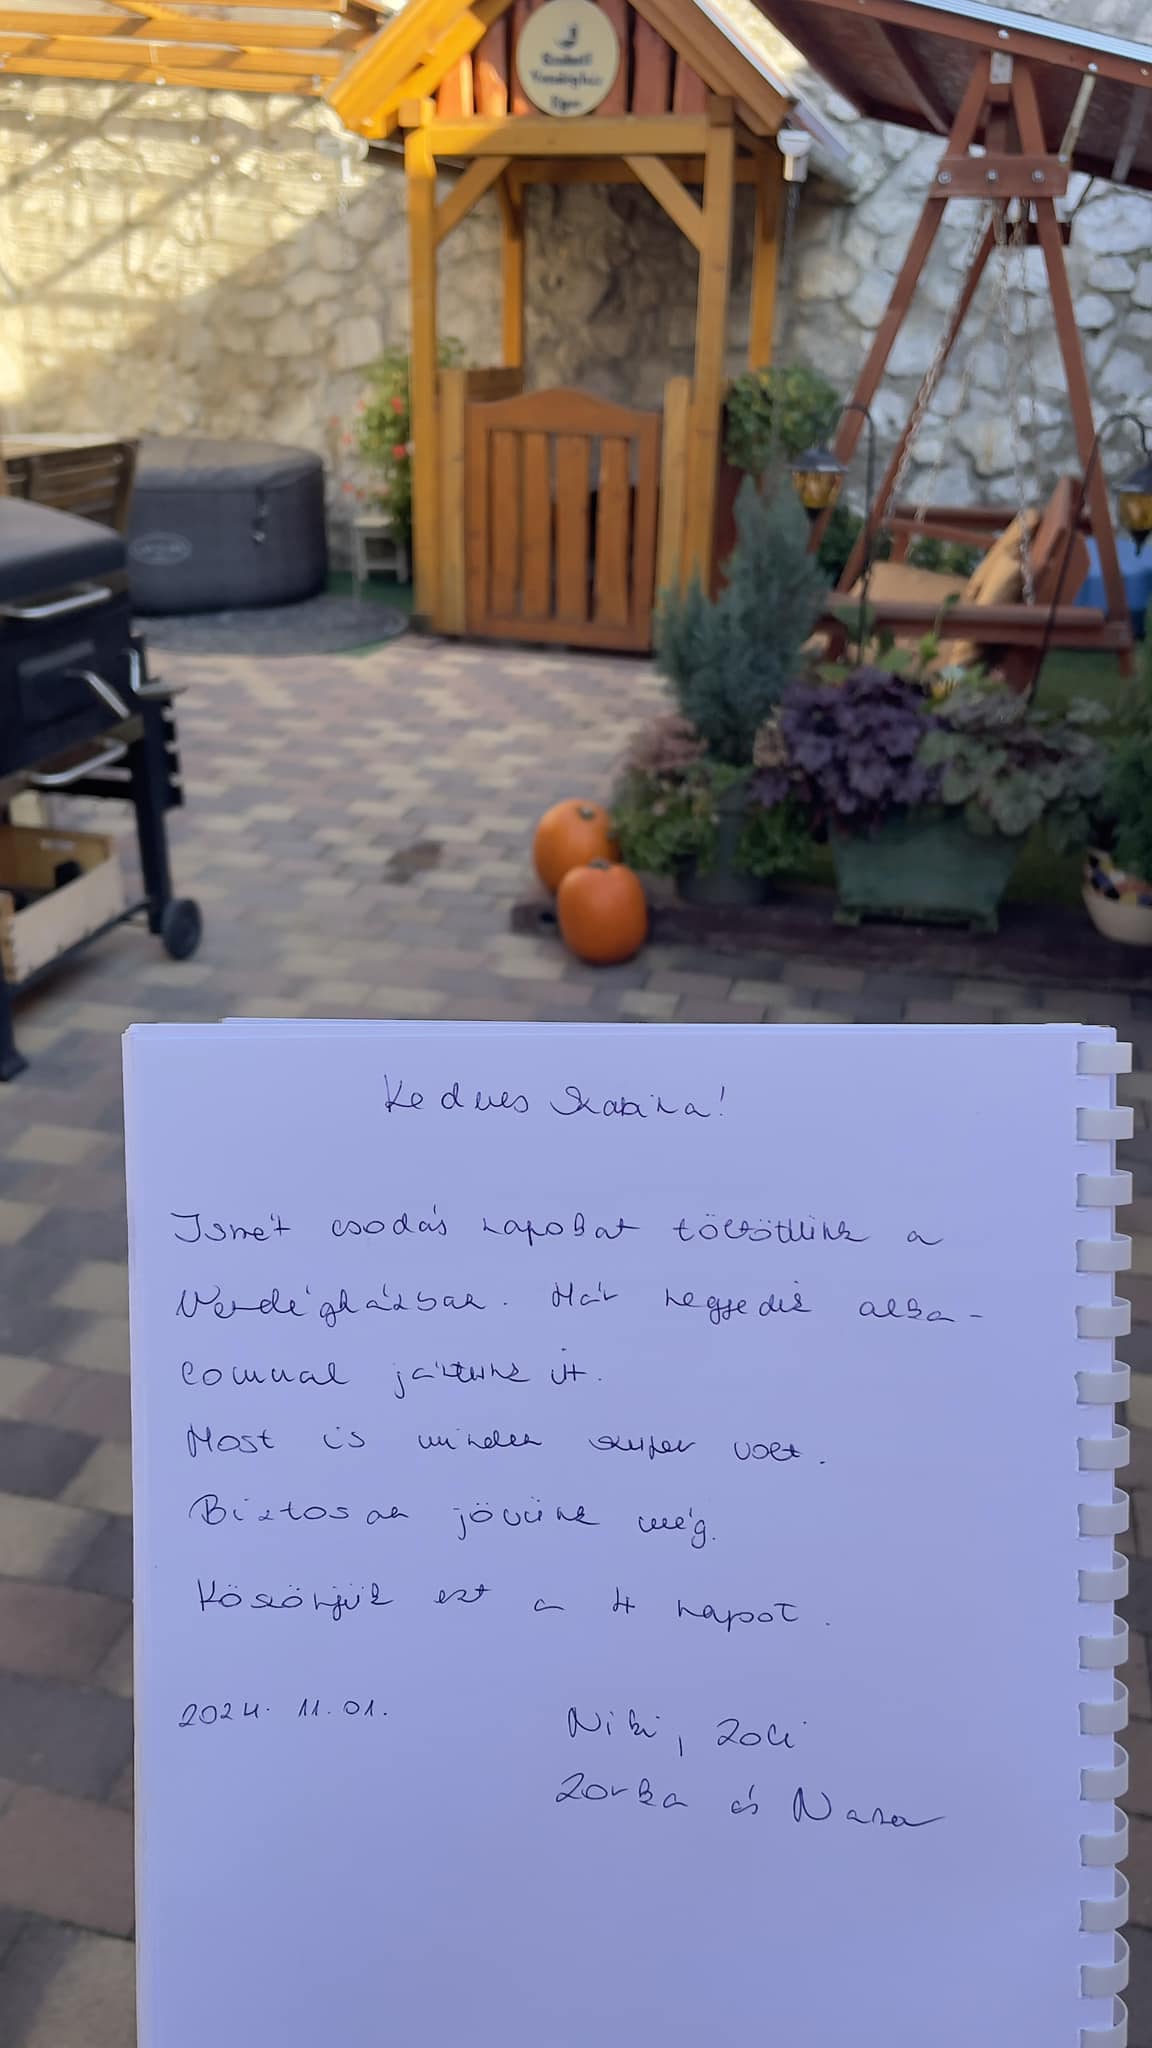 Kedves Szabina!
Ismét csodás napokat töltöttünk a
Vendégházban. Már negyedik alka-
lommal jártunk itt.
Most is minden szuper volt.
Biztosan jövünk még.
Köszönjük ezt a 4 napot.
2024. 11.01.
Niki, Zoli
Zorka és Nara